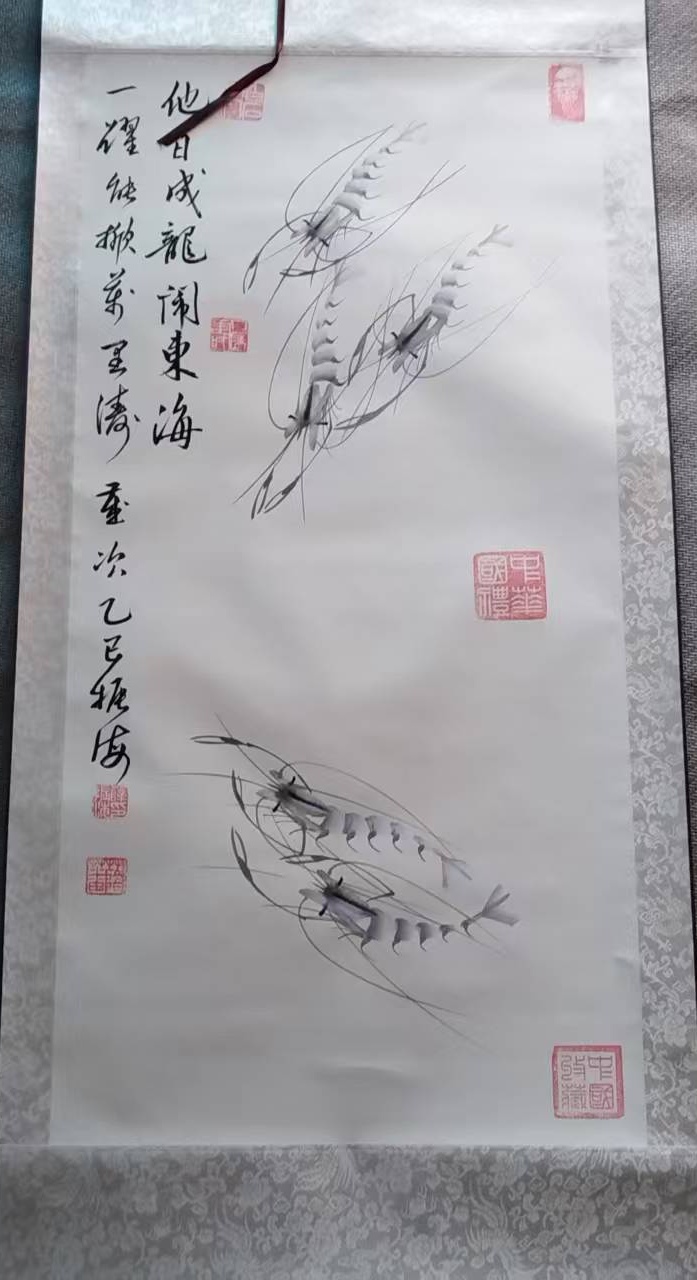 他日成龍闹東海
一耀能掀萬里濤 歲次乙巳振海
中華國禮
中國收藏